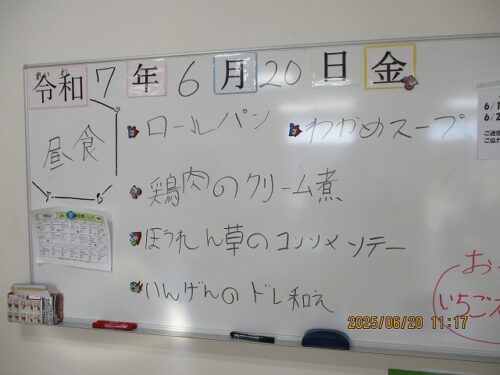 令和7年6月20日金
昼食
ロールパン
わかめスープ
鶏肉のクリーム煮
ほうれん草のコンソメソテー
いんげんのドレ和え
お
いちご
6/1
6/2
2025/06/20 11:17